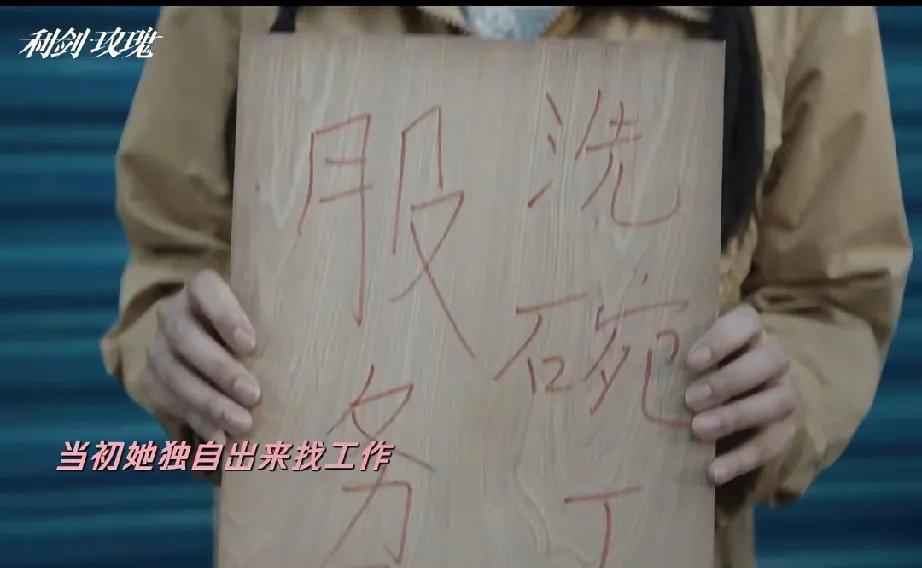 利剑·玫瑰
洗碗
服务
当初她独自出来找工作